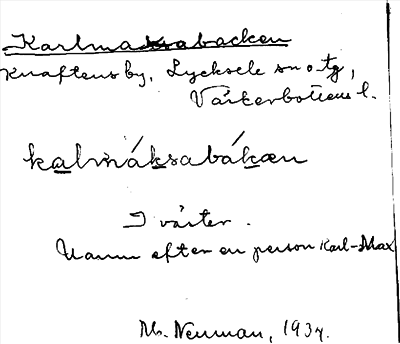 Karlmaxabacken
Knaftens by, Lycksele sn o. tg,
Västerbottens l.
kalmáksabákæn
I väster.
Namn efter en person Karl-Max
M. Neuman, 1937.